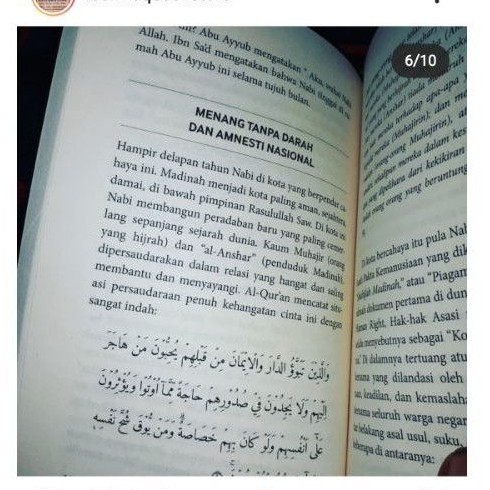 6/10
Abu Ayyub mengatakan " Aku, wahai Nabi
Allah. Ibn Sa'd mengatakan bahwa Nabi tinggal di ru-
mah Abu Ayyub ini selama tujuh bulan.
MENANG TANPA DARAH
DAN AMNESTI NASIONAL
Hampir delapan tahun Nabi di kota yang berpendar ca-
haya ini. Madinah menjadi kota paling aman, sejahtera,
damai, di bawah pimpinan Rasulullah Saw. Di kota ini
Nabi membangun peradaban baru yang paling cemer-
lang sepanjang sejarah dunia. Kaum Muhajir (orang
yang hijrah) dan "al-Anshar" (penduduk Madinah),
dipersaudarakan dalam relasi yang hangat dan saling
membantu dan menyayangi. Al-Qur'an mencatat situ-
asi persaudaraan penuh kehangatan cinta ini dengan
sangat indah:
وَالَّذِيْنَ تَبَوَّؤُ الدَّارَ وَالْاِيْمَانَ مِنْ قَبْلِهِمْ يُحِبُّوْنَ مَنْ هَاجَرَ
اِلَيْهِمْ وَلَا يَجِدُوْنَ فِيْ صُدُوْرِهِمْ حَاجَةً مِّمَّآ اُوْتُوْا وَيُؤْثِرُوْنَ
عَلٰٓى اَنْفُسِهِمْ وَلَوْ كَانَ بِهِمْ خَصَاصَةٌ وَمَنْ يُّوْقَ شُحَّ نَفْسِهٖ
(Muhajirin), dan me
orang Muhajirin), at
mereka dalam kes
dipelihara dari kekikiran
orang yang beruntung
kota bercahaya itu pula Nabi
Kemanusiaan yang dik
Madinah," atau "Piagam
dokumen pertama di dun
Right, Hak-hak Asasi
menyebutnya sebagai "Ko
Di dalamnya tertuang atu
yang dilandasi oleh
keadilan, dan kemaslaha
seluruh warga negar
belakang asal usul, suku,
di antaranya: